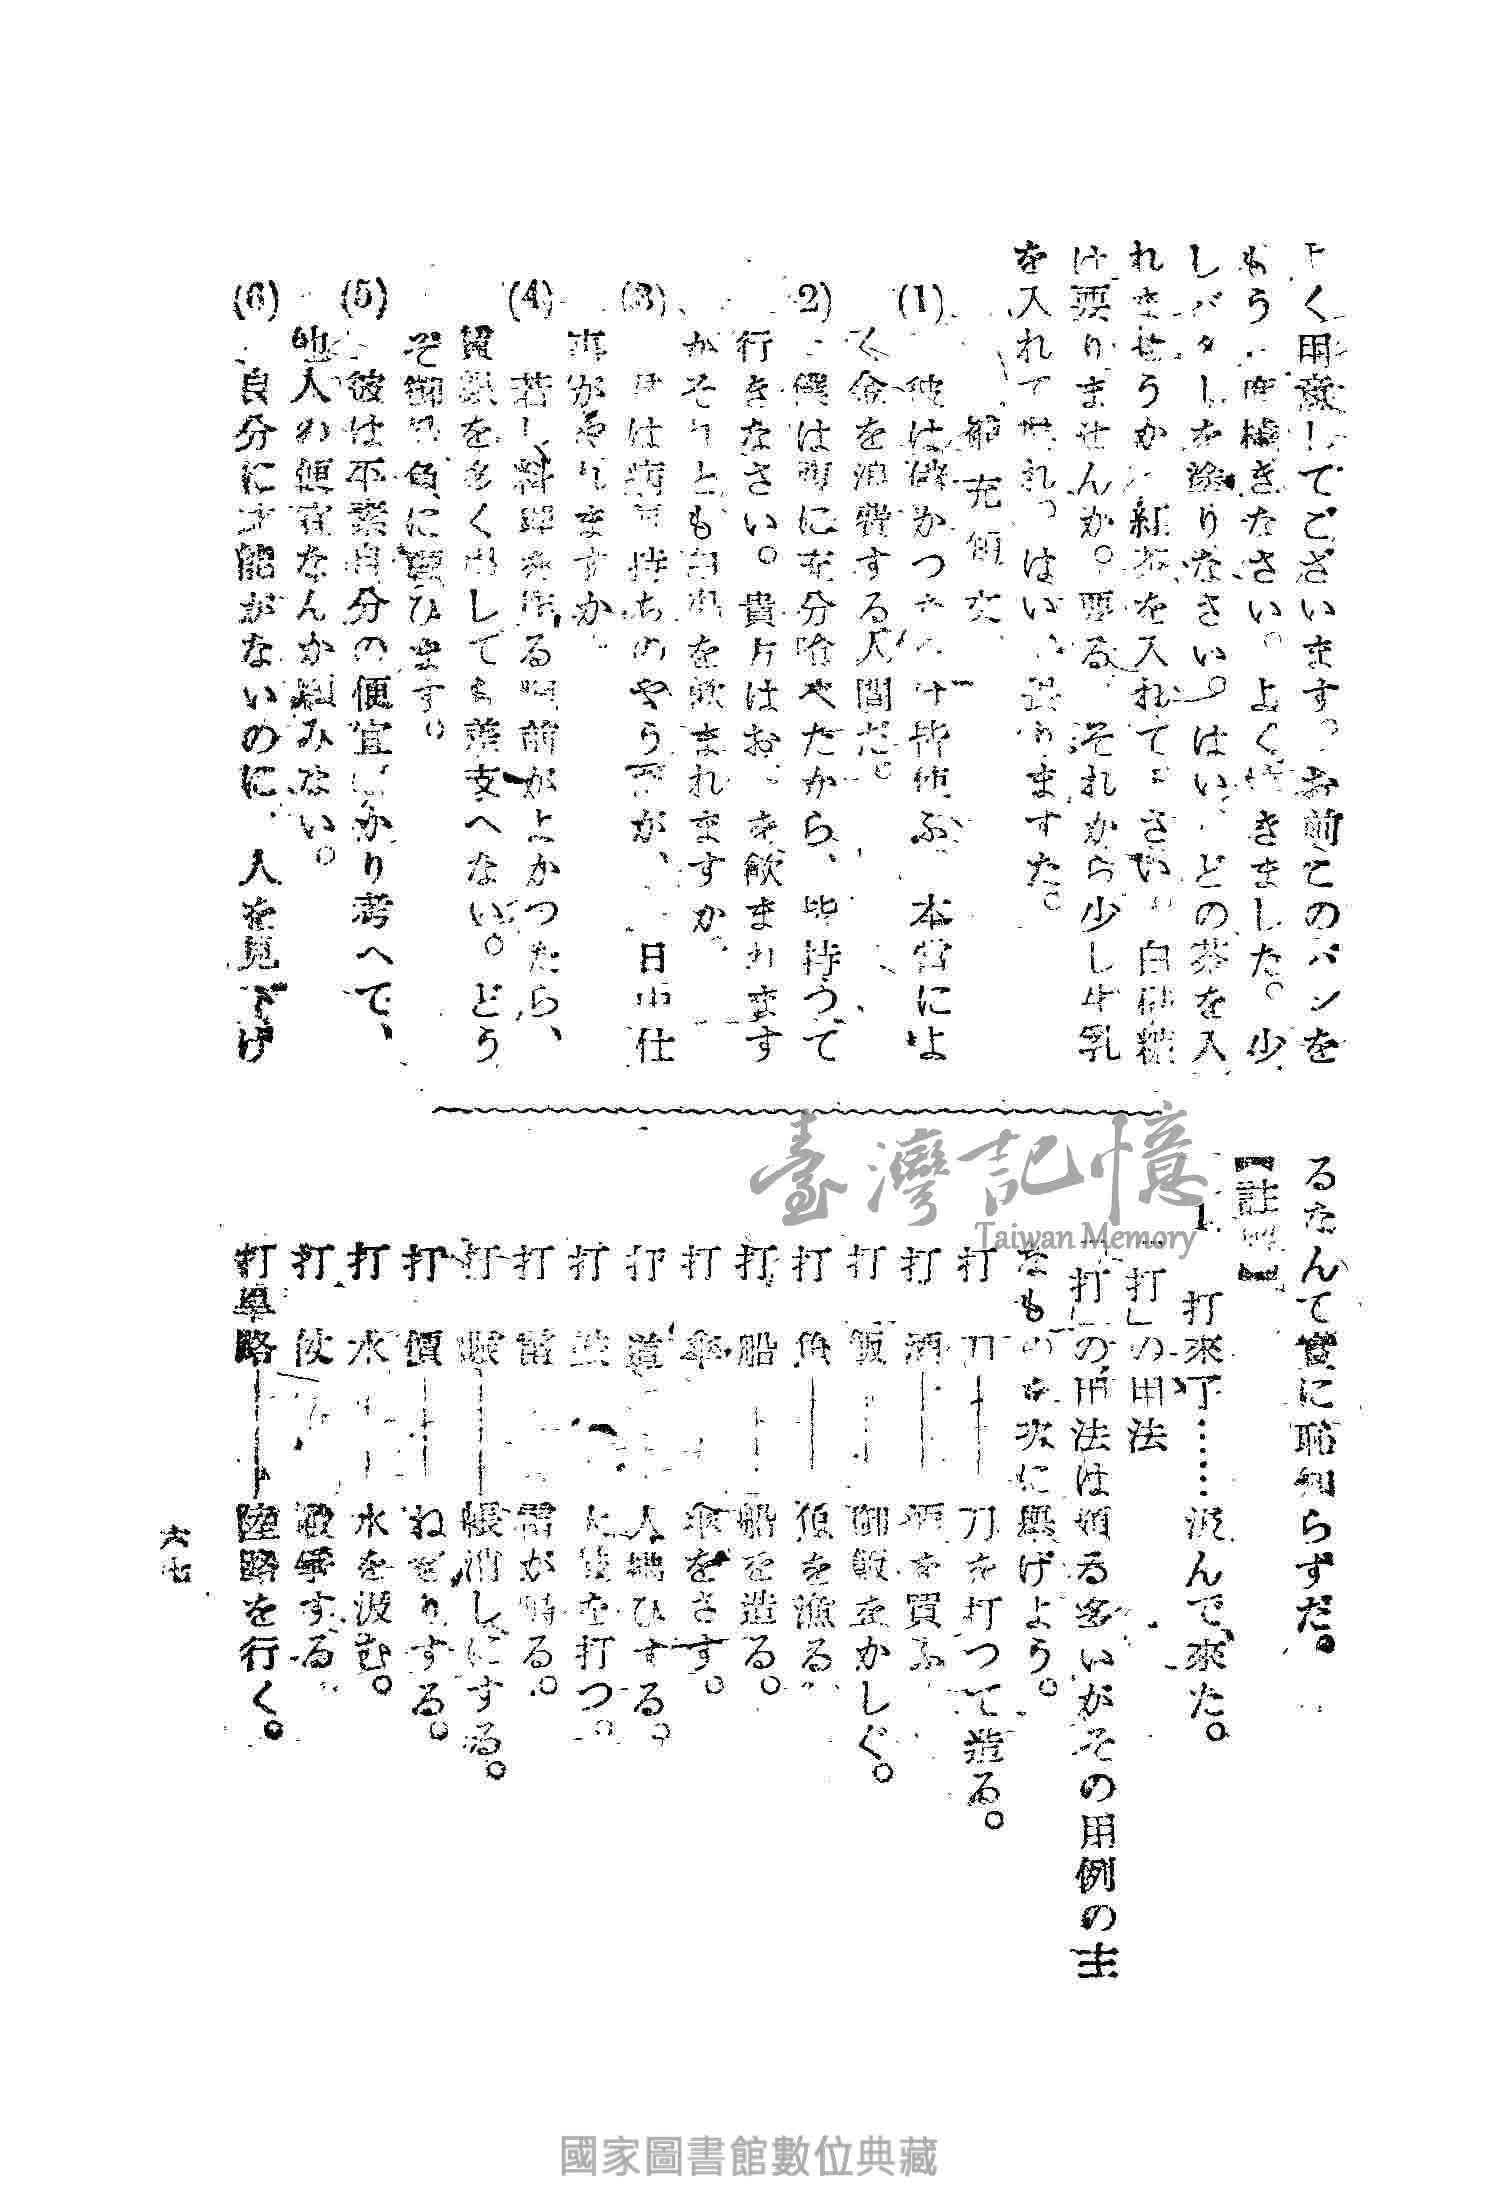 よく用意してございます。お前このパンを
もう一度焼きなさい。よく焼きました。少
しバターを塗りなさい。はい、どの茶を入
れませうか 紅茶を入れて下さい。白砂糖
は要りませんか。要る、それから少し牛乳
を入れて呉れ。はい、 ました。
補充 文
(1) 彼は儲かつた 皆 ぶ、本當によ
く金を浪費する人間だ。
(2) 僕は 充分喰べたから、皆持つて
行きなさい。貴方はお を飲まれます
かそれとも白 を飲まれますか。
(3) は病 持ちのやう が、 日中仕
事がありますか。
(4) 若し料理を作る 前がよかつたら、
買 を多く出しても差支へない。どう
ぞ御 に願ひます。
(5) 彼は平素自分の便宜ばかり考へて、
他人の便宜なんか顧みない。
(6) 自分に才能がないのに、人を見下げ
るなんて實に恥知らずだ。
【註 】
1. 打來了……汲んで來た。
「打」の用法
「打」の用法は頗る多いがその用例の主
なものを次に擧げよう。
打 刀——刀を打つて造る。
打 酒——酒を買ふ
打 飯——御飯をかしぐ。
打 魚——魚を漁る。
打 船——船を造る。
打 傘——傘をさす。
打 道——人拂ひする。
打 を打つ。
打 雷——雷が鳴る。
打 賬——帳消しにする。
打 價——ねぎりする。
打 水——水を汲む。
打 仗 戰爭する。
打旱路——陸路を行く。
六七
臺灣記憶
Taiwan Memory
國家圖書館數位典藏